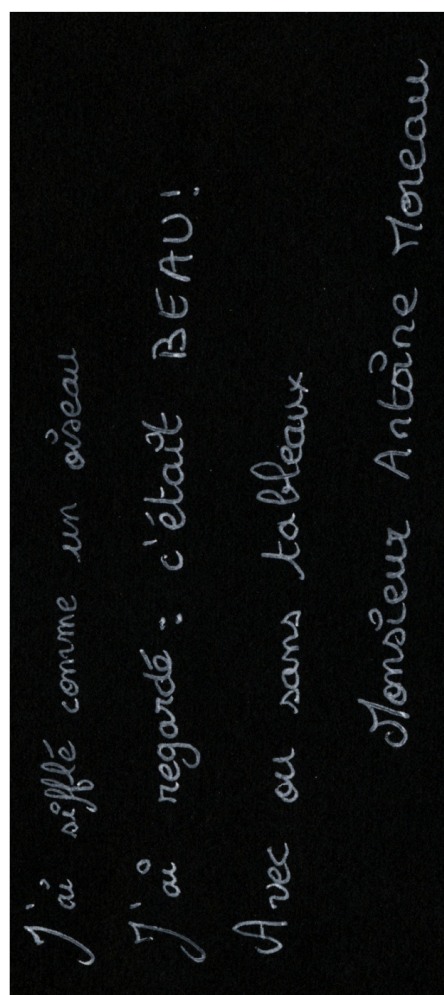 J'ai sifflé comme un oiseau
J'ai regardé : c'était BEAU !
Avec ou sans tableaux
Monsieur Antoine Moreau